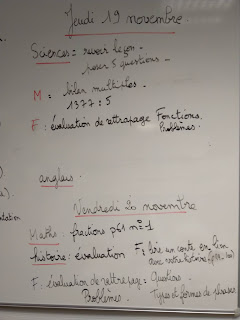 Jeudi 19 novembre
Sciences = revoir leçon -
poser 5 questions -
M = bilan multiples -
1377 : 5
F : évaluation de rattrapage Fonctions,
Problèmes.
anglais
Vendredi 20 novembre
Maths : fractions p61 n°1
histoire : évaluation F : lire un conte en lien
avec votre histoire
F. évaluation de rattrapage = Questions
Problèmes. Types et formes de phrases